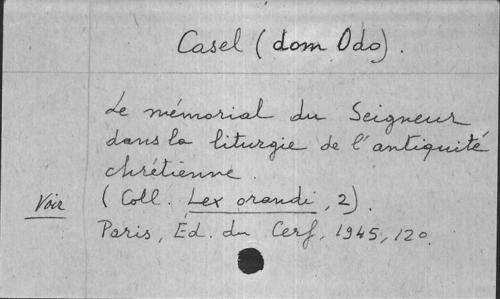 Casel (dom Odo).
Le mémorial du Seigneur
dans la liturgie de l'antiquité
chrétienne.
Voir (Coll. Lex orandi, 2).
Paris, Ed. du Cerf, 1945, 120.